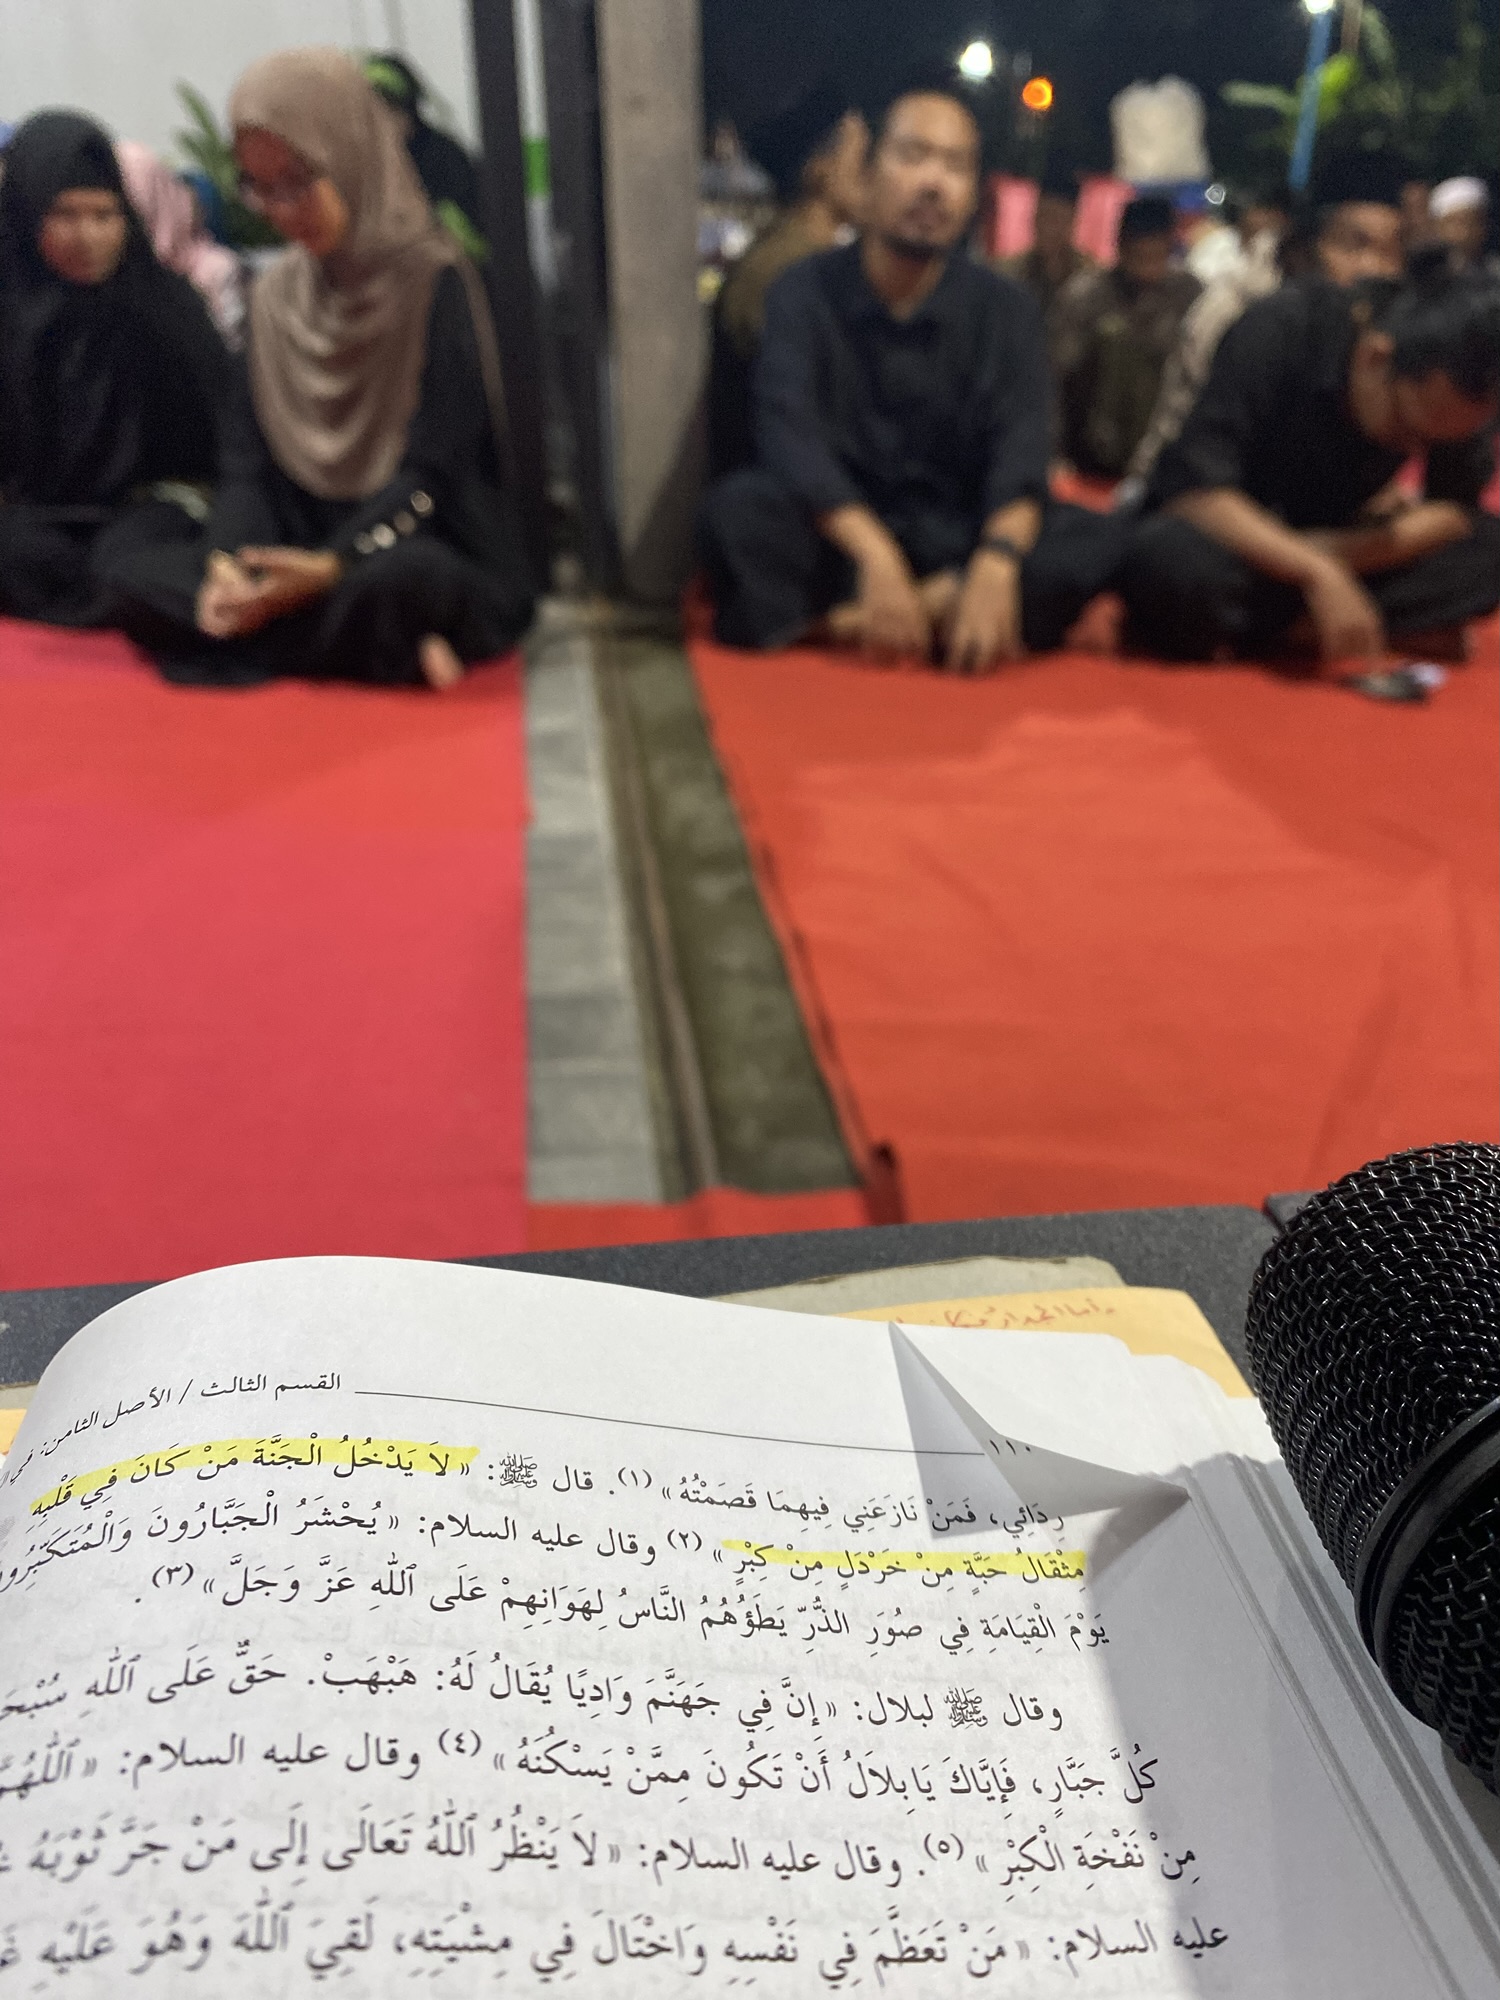 ١١٠
القسم الثالث / الأصل الثامن: في
رِدَائِي، فَمَنْ نَازَعَنِي فِيهِمَا قَصَمْتُهُ» (١). قال ﷺ: «لاَ يَدْخُلُ الْجَنَّةَ مَنْ كَانَ فِي قَلْبِهِ
مِثْقَالُ حَبَّةٍ مِنْ خَرْدَلٍ مِنْ كِبْرٍ» (٢) وقال عليه السلام: «يُحْشَرُ الْجَبَّارُونَ وَالْمُتَكَبِّرُونَ
يَوْمَ الْقِيَامَةِ فِي صُوَرِ الذُّرِّ يَطَؤُهُمُ النَّاسُ لِهَوَانِهِمْ عَلَى ٱللهِ عَزَّ وَجَلَّ» (٣).
وقال ﷺ لبلال: «إِنَّ فِي جَهَنَّمَ وَادِيًا يُقَالُ لَهُ: هَبْهَبْ. حَقٌّ عَلَى ٱللهِ
كُلَّ جَبَّارٍ، فَإِيَّاكَ يَابِلاَلُ أَنْ تَكُونَ مِمَّنْ يَسْكُنَهُ» (٤) وقال عليه السلام: «ٱللّٰهُمَّ
مِنْ نَفْخَةِ الْكِبْرِ» (٥). وقال عليه السلام: «لاَ يَنْظُرُ ٱللهُ تَعَالَى إِلَى مَنْ جَرَّ ثَوْبَهُ
عليه السلام: «مَنْ تَعَظَّمَ فِي نَفْسِهِ وَاخْتَالَ فِي مِشْيَتِهِ، لَقِيَ ٱللهَ وَهُوَ عَلَيْهِ